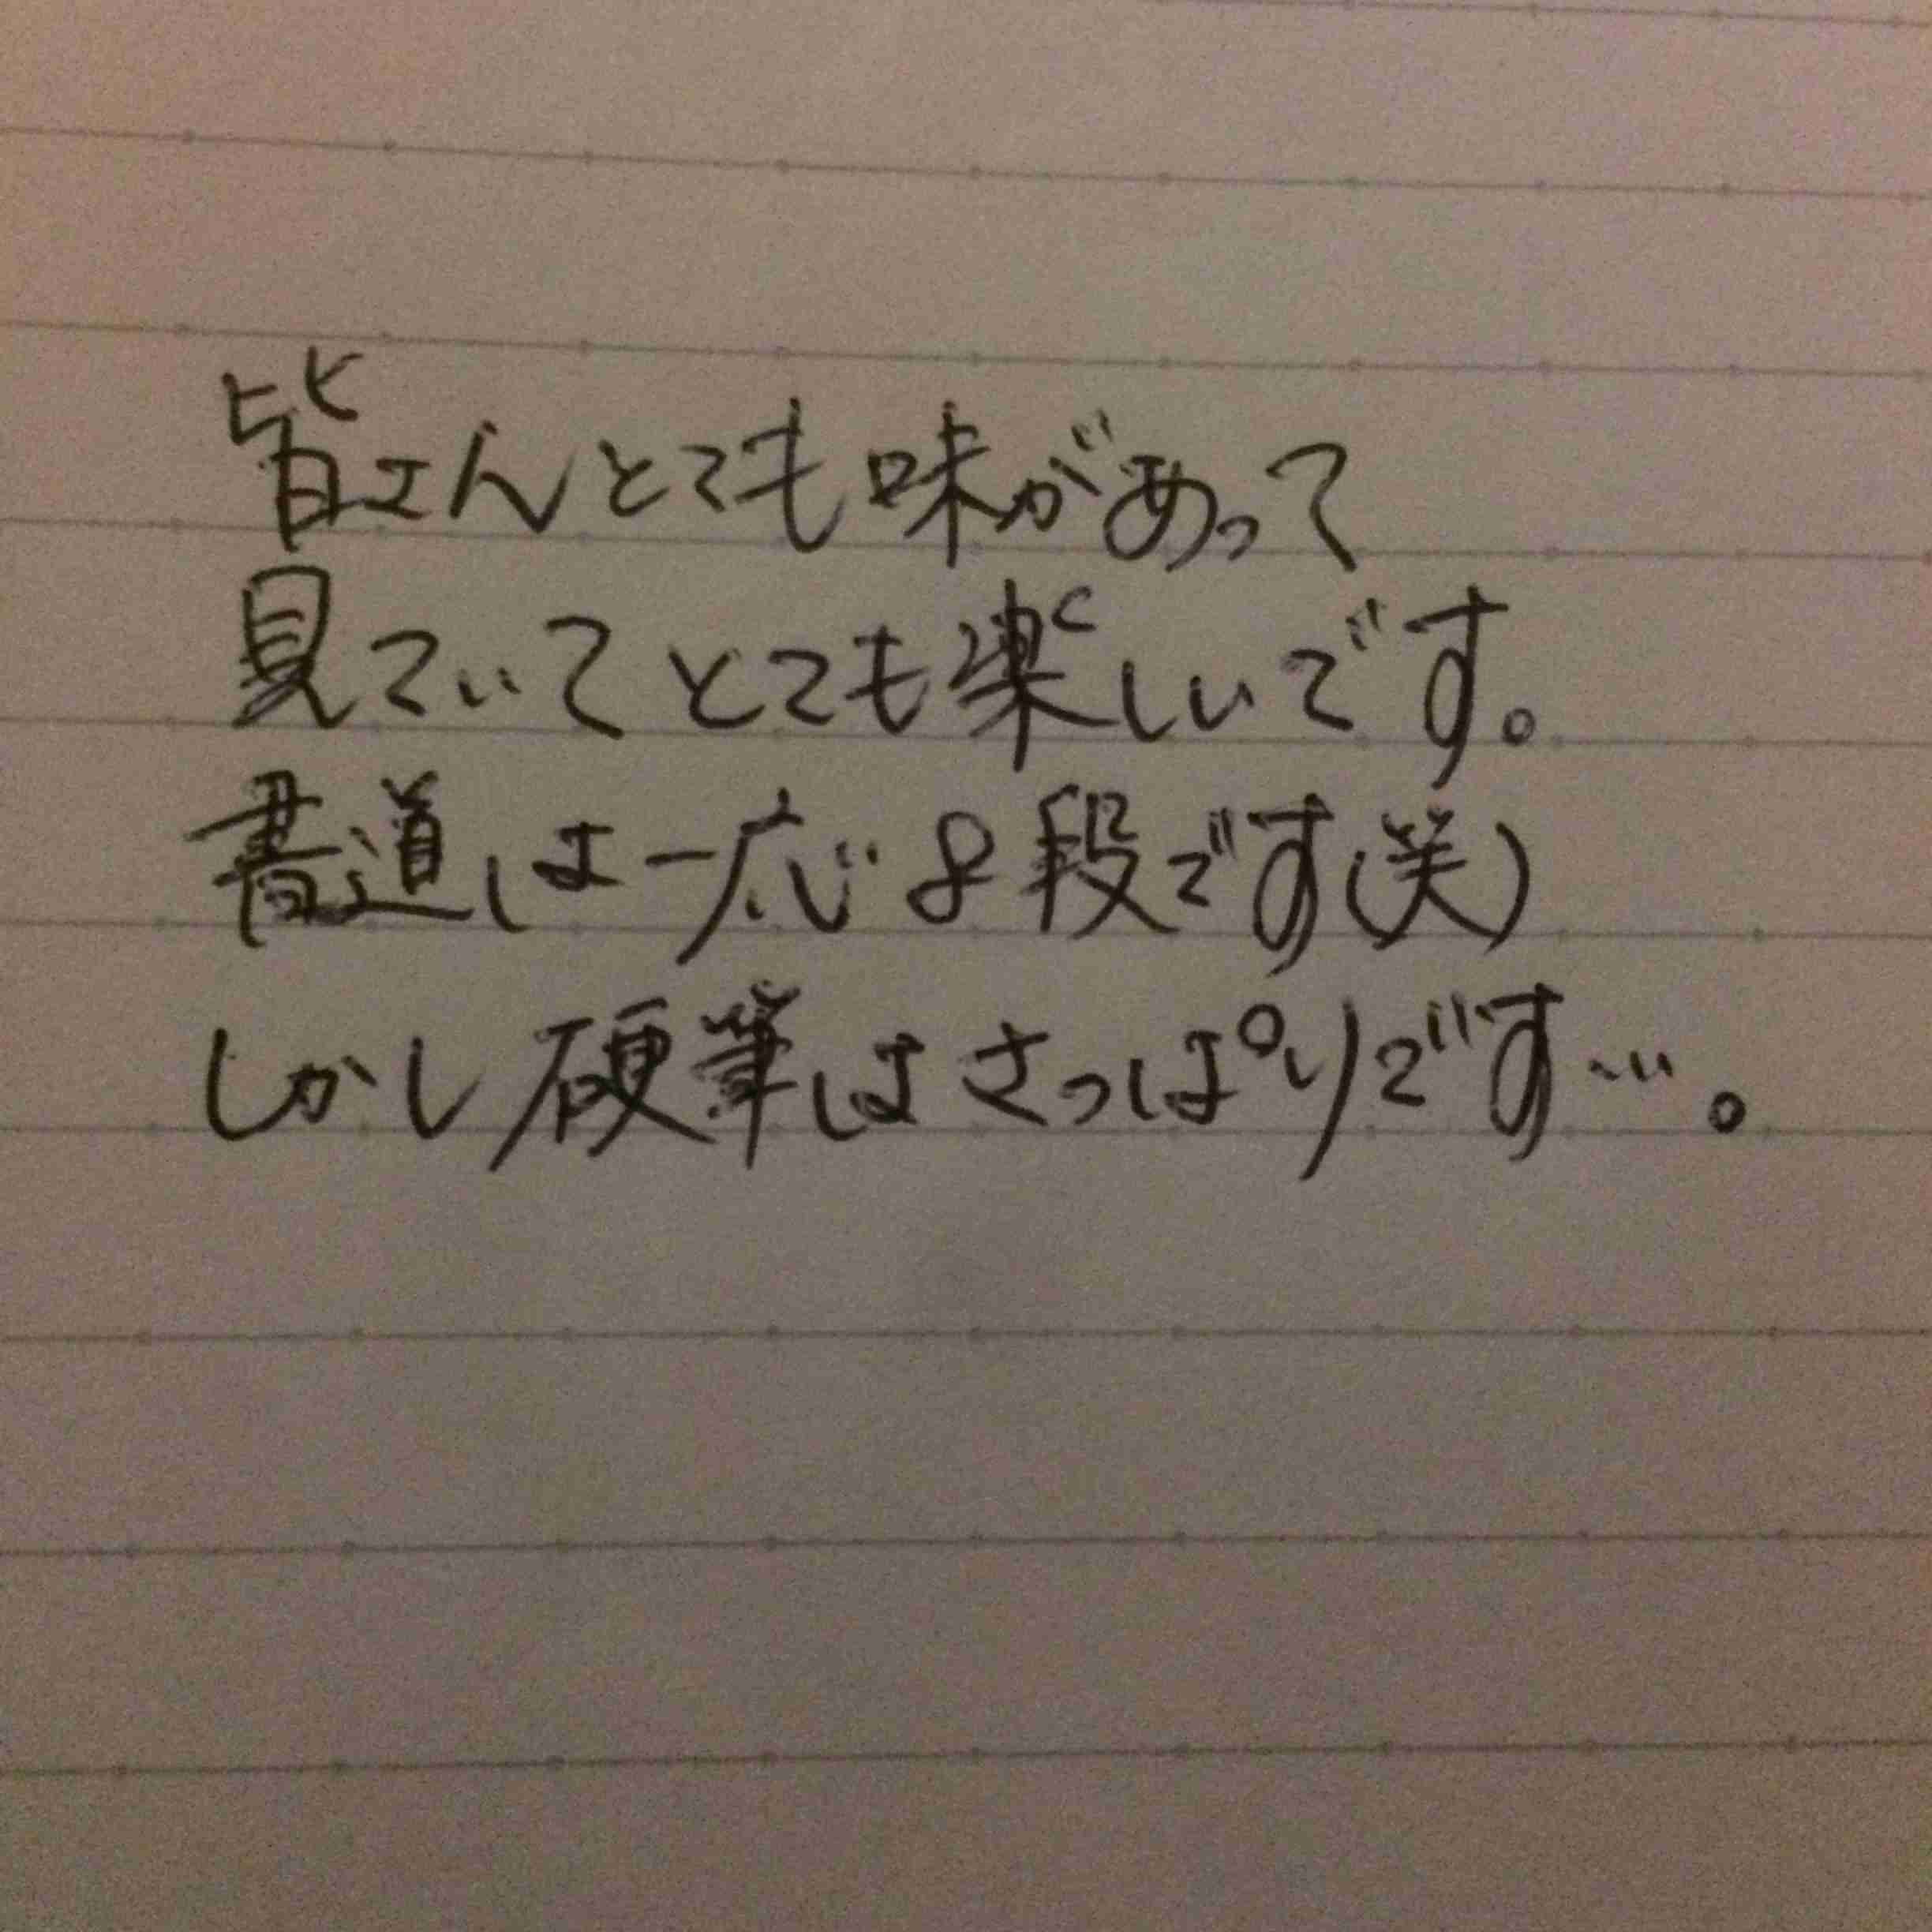 皆さんとても味があって
見ていてとても楽しいです。
書道は一応8段です(笑)
しかし硬筆はさっぱりです…。